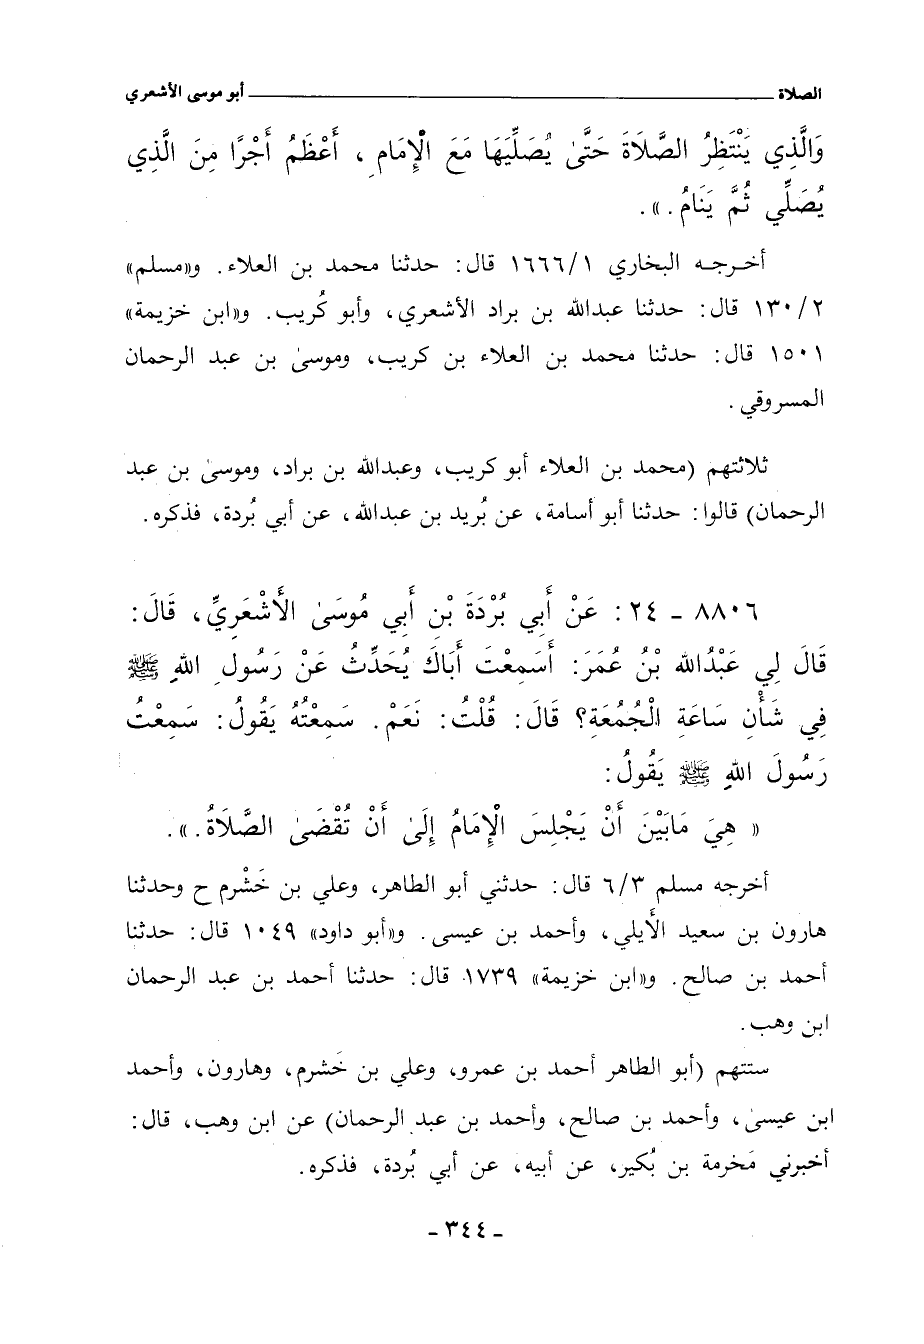 الصلاة ــــــــــــــــــــ أبو موسى الأشعري
وَالَّذِي يَنْتَظِرُ الصَّلَاةَ حَتَّىٰ يُصَلِّيَهَا مَعَ الْإِمَامِ ، أَعْظَمُ أَجْرًا مِنَ الَّذِي
يُصَلِّي ثُمَّ يَنَامُ . » .
أخرجه البخاري ١/١٦٦٦ قال: حدثنا محمد بن العلاء. و«مسلم»
٢/١٣٠ قال: حدثنا عبدالله بن براد الأشعري، وأبو كُريب. و«ابن خزيمة»
١٥٠١ قال: حدثنا محمد بن العلاء بن كريب، وموسىٰ بن عبد الرحمان
المسروقي .
ثلاثتهم (محمد بن العلاء أبو كريب، وعبدالله بن براد، وموسىٰ بن عبد
الرحمان) قالوا: حدثنا أبو أسامة، عن بُريد بن عبدالله، عن أبي بُردة، فذكره.
٨٨٠٦ - ٢٤ : عَنْ أَبِي بُرْدَةَ بْنِ أَبِي مُوسَىٰ الأَشْعَرِيِّ، قَالَ:
قَالَ لِي عَبْدُالله بْنُ عُمَرَ: أَسَمِعْتَ أَبَاكَ يُحَدِّثُ عَنْ رَسُولِ اللهِ ﷺ
فِي شَأْنِ سَاعَةِ الْجُمُعَةِ؟ قَالَ: قُلْتُ: نَعَمْ. سَمِعْتُهُ يَقُولُ: سَمِعْتُ
رَسُولَ اللهِ ﷺ يَقُولُ:
« هِيَ مَابَيْنَ أَنْ يَجْلِسَ الْإِمَامُ إِلَىٰ أَنْ تُقْضَىٰ الصَّلَاةُ . » .
أخرجه مسلم ٣/٦ قال: حدثني أبو الطاهر، وعلي بن خَشْرم ح وحدثنا
هارون بن سعيد الأَيلي، وأحمد بن عيسى. و«أبو داود» ١٠٤٩ قال: حدثنا
أحمد بن صالح. و«ابن خزيمة» ١٧٣٩ قال: حدثنا أحمد بن عبد الرحمان
ابن وهب.
ستتهم (أبو الطاهر أحمد بن عمرو، وعلي بن خَشرم، وهارون، وأحمد
ابن عيسىٰ، وأحمد بن صالح، وأحمد بن عبد الرحمان) عن ابن وهب، قال:
أخبرني مَخرمة بن بُكير، عن أبيه، عن أبي بُردة، فذكره.
- ٣٤٤ -